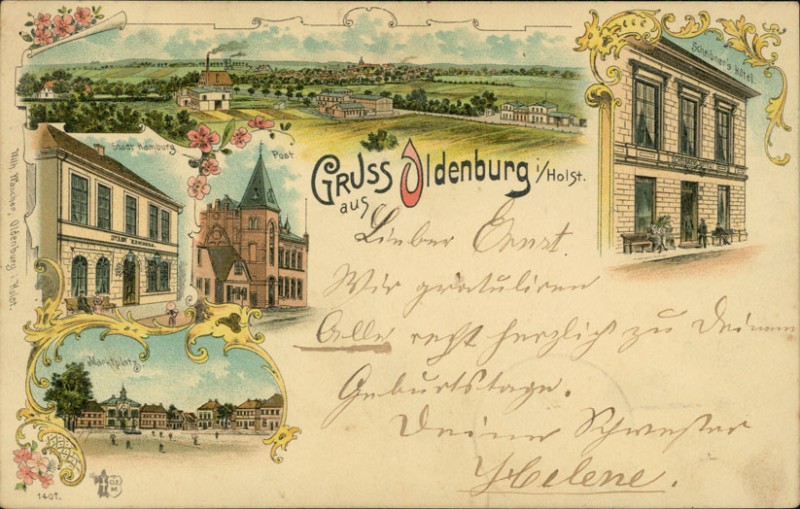 Stadt Hamburg
Post
Scheibner's Hôtel
GRUSS
aus
Oldenburg
i/Holst.
Lieber Ernst.
Wir gratuliren
Alle recht herzlich zu Deinem
Geburtstage.
Deine Schwester
Helene.
Marktplatz.
Oldenburg i. Holst.
1407.